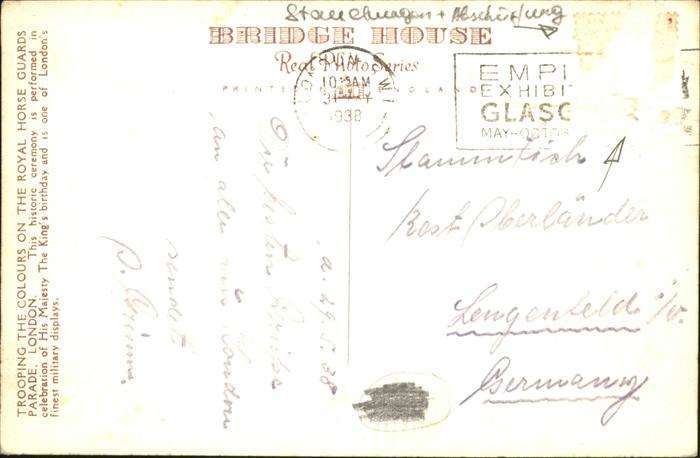 Stauchungen + Abschürfung
BRIDGE HOUSE
Real Photo Series
PRINTED IN ENGLAND
TROOPING THE COLOURS ON THE ROYAL HORSE GUARDS
PARADE, LONDON. This historic ceremony is performed in
celebration of His Majesty The King's birthday and is one of London's
finest military displays.
10:15 AM
1938
EMPI
EXHIBIT
GLASG
MAY-OCTOB
Stammtisch
Rest. Oberländer
Lengenfeld i/V.
Germany
a. 29.5.38
Die besten Grüße
an alle aus London
sendet